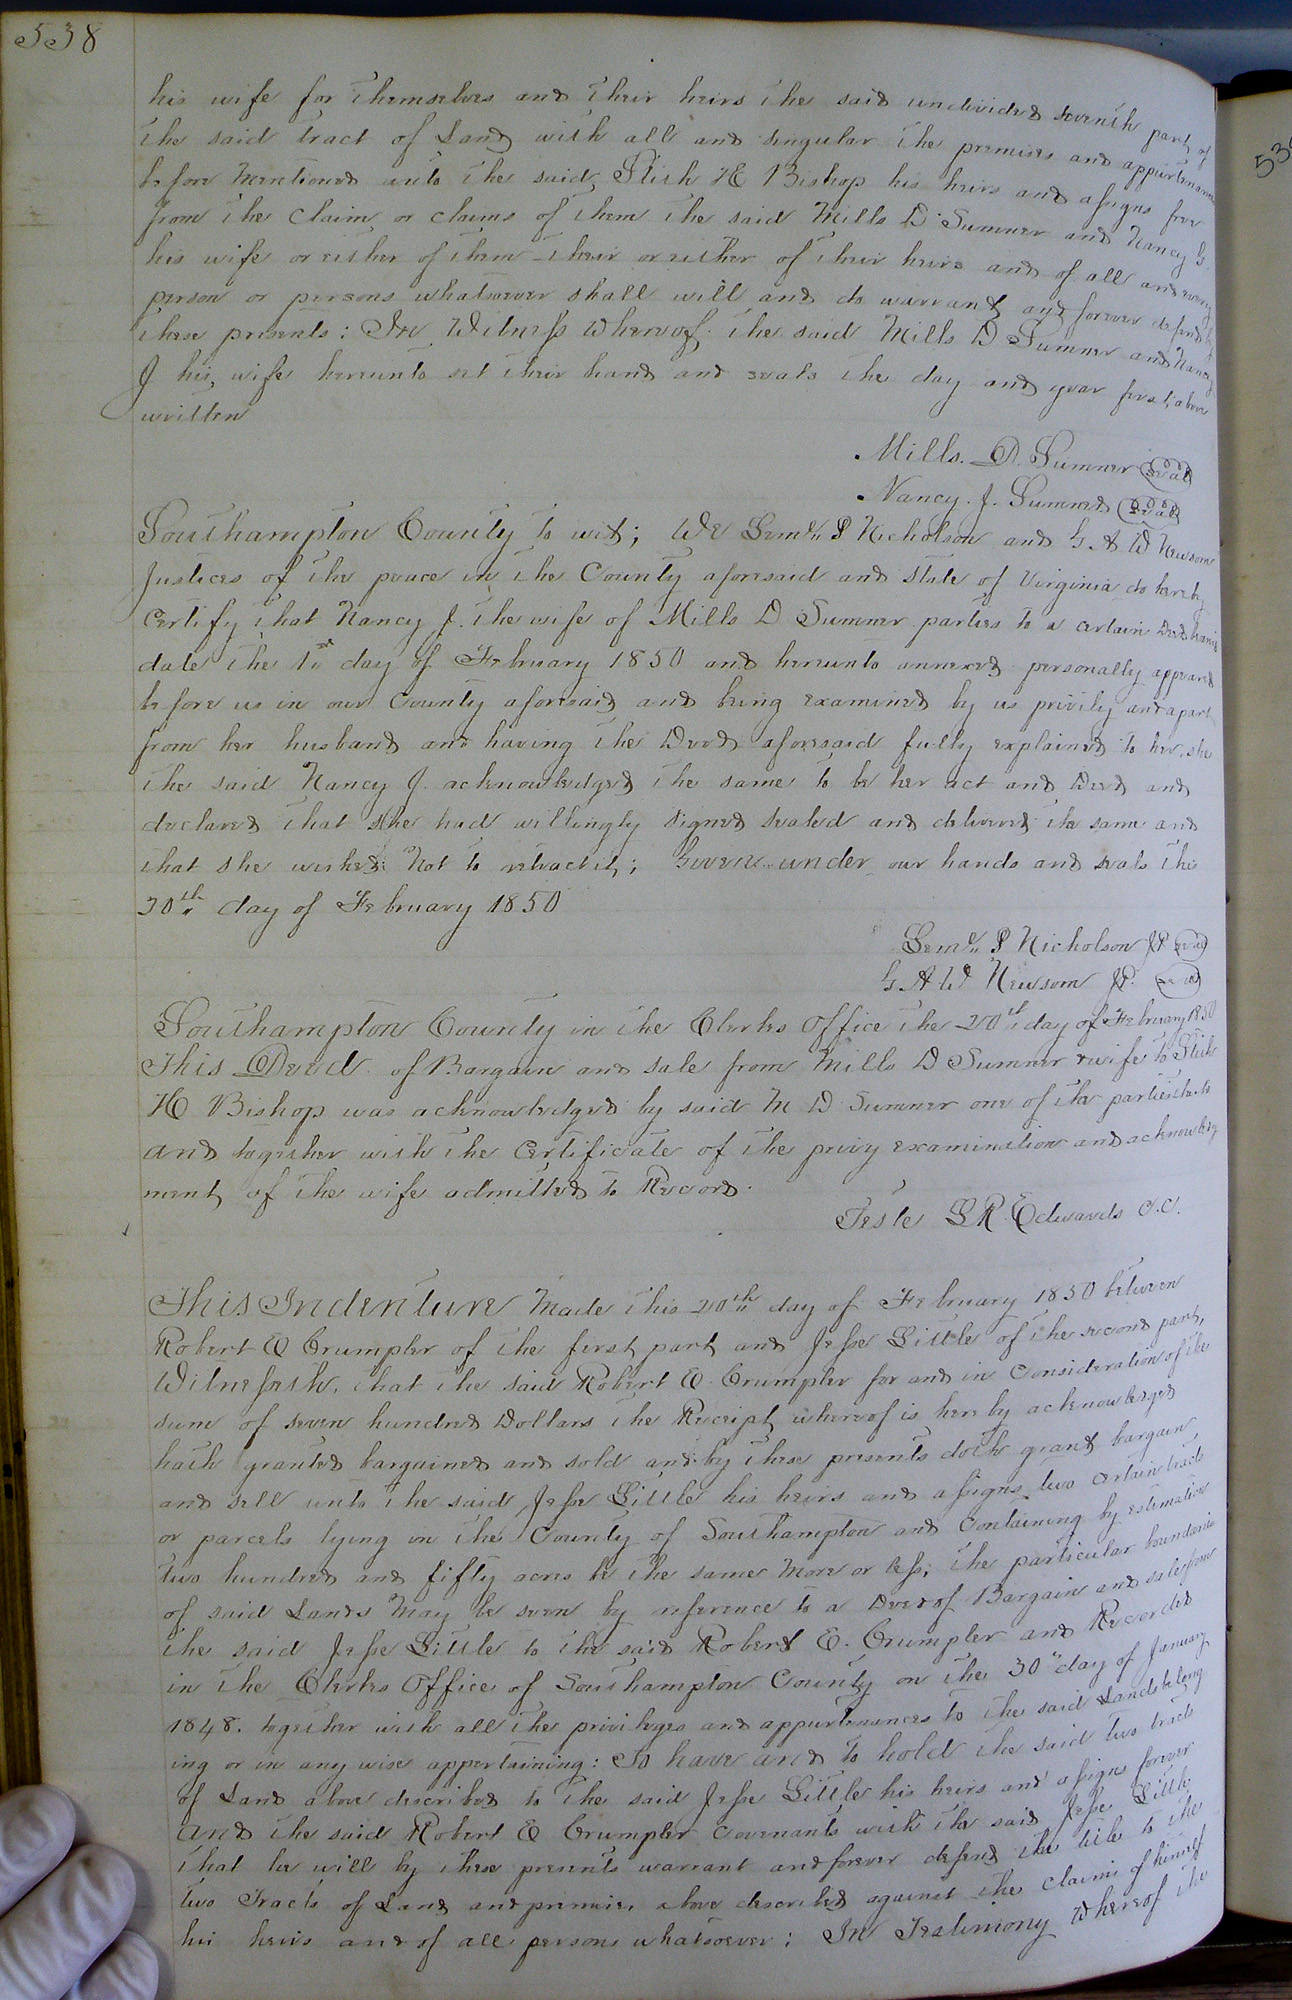 538
his wife for themselves and their heirs the said undivided seventh part of
the said tract of Land with all and singular the premises and appurtenances
before mentioned unto the said, Stith H Bishop his heirs and assigns free
from the claim or claims of them the said Mills D Summer and Nancy
his wife or either of them their or either of their heirs and of all and every
person or persons whatsoever shall will and do warrant and forever defend by
these presents: In Witness Whereof the said Mills D Summer and Nancy
J his, wife hereunto set their hand and seals the day and year first above
written
Mills. D. Summer Seal
Nancy. J. Summer Seal
Southampton County to wit; We P Nicholson and G A W Newsom
Justices of the peace in the County aforesaid and State of Virginia do hereby
certify that Nancy J. the wife of Mills D Summer parties to a certain Deed bearing
date the 1st day of February 1850 and hereunto annexed personally appeared
before us in our County aforesaid and being examined by us privily and apart
from her husband and having the Deed aforesaid fully explained to her, she
the said Nancy J. acknowledged the same to be her act and Deed and
declared that she had willingly signed sealed and delivered the same and
that she wished not to retract it; Given under our hands and seals this
20th day of February 1850
P Nicholson JP Seal
G A W Newsom JP. Seal
Southampton County in the Clerks Office the 20th day of February 1850
This Deed of Bargain and sale from Mills D Summer & wife to Stith
H Bishop was acknowledged by said M D Summer one of the parties thereto
and together with the certificate of the privy examination and acknowledg
ment, of the wife admitted to Record.
Teste L R Edwards C.C.
This Indenture Made this 20th day of February 1850 between
Robert E Crumpler of the first part and Jesse Little of the second part,
Witnesseth, that the said Robert E. Crumpler for and in Consideration of the
sum of seven hundred Dollars the Receipt whereof is hereby acknowledged
hath granted bargained and sold and by these presents doth grant bargain,
and sell unto the said Jesse Little his heirs and assigns two certain tracts
or parcels lying in the County of Southampton and Containing by estimation
two hundred and fifty acres be the same more or less; the particular boundaries
of said Lands May be seen by reference to a Deed of Bargain and sale from
the said Jesse Little to the said Robert E. Crumpler and Recorded
in the Clerks Office of Southampton County on the 30" day of January
1848. together with all the privileges and appurtenances to the said Lands belong
ing or in any wise appertaining: To have and to hold the said two tracts
of Land above described to the said Jesse Little his heirs and assigns forever
And the said Robert E Crumpler covenants with the said Jesse Little
that he will by these presents warrant and forever defend the title to the
two Tracts of Land and premises above described against the claims of himself
his heirs and of all persons whatsoever: In Testimony Whereof the